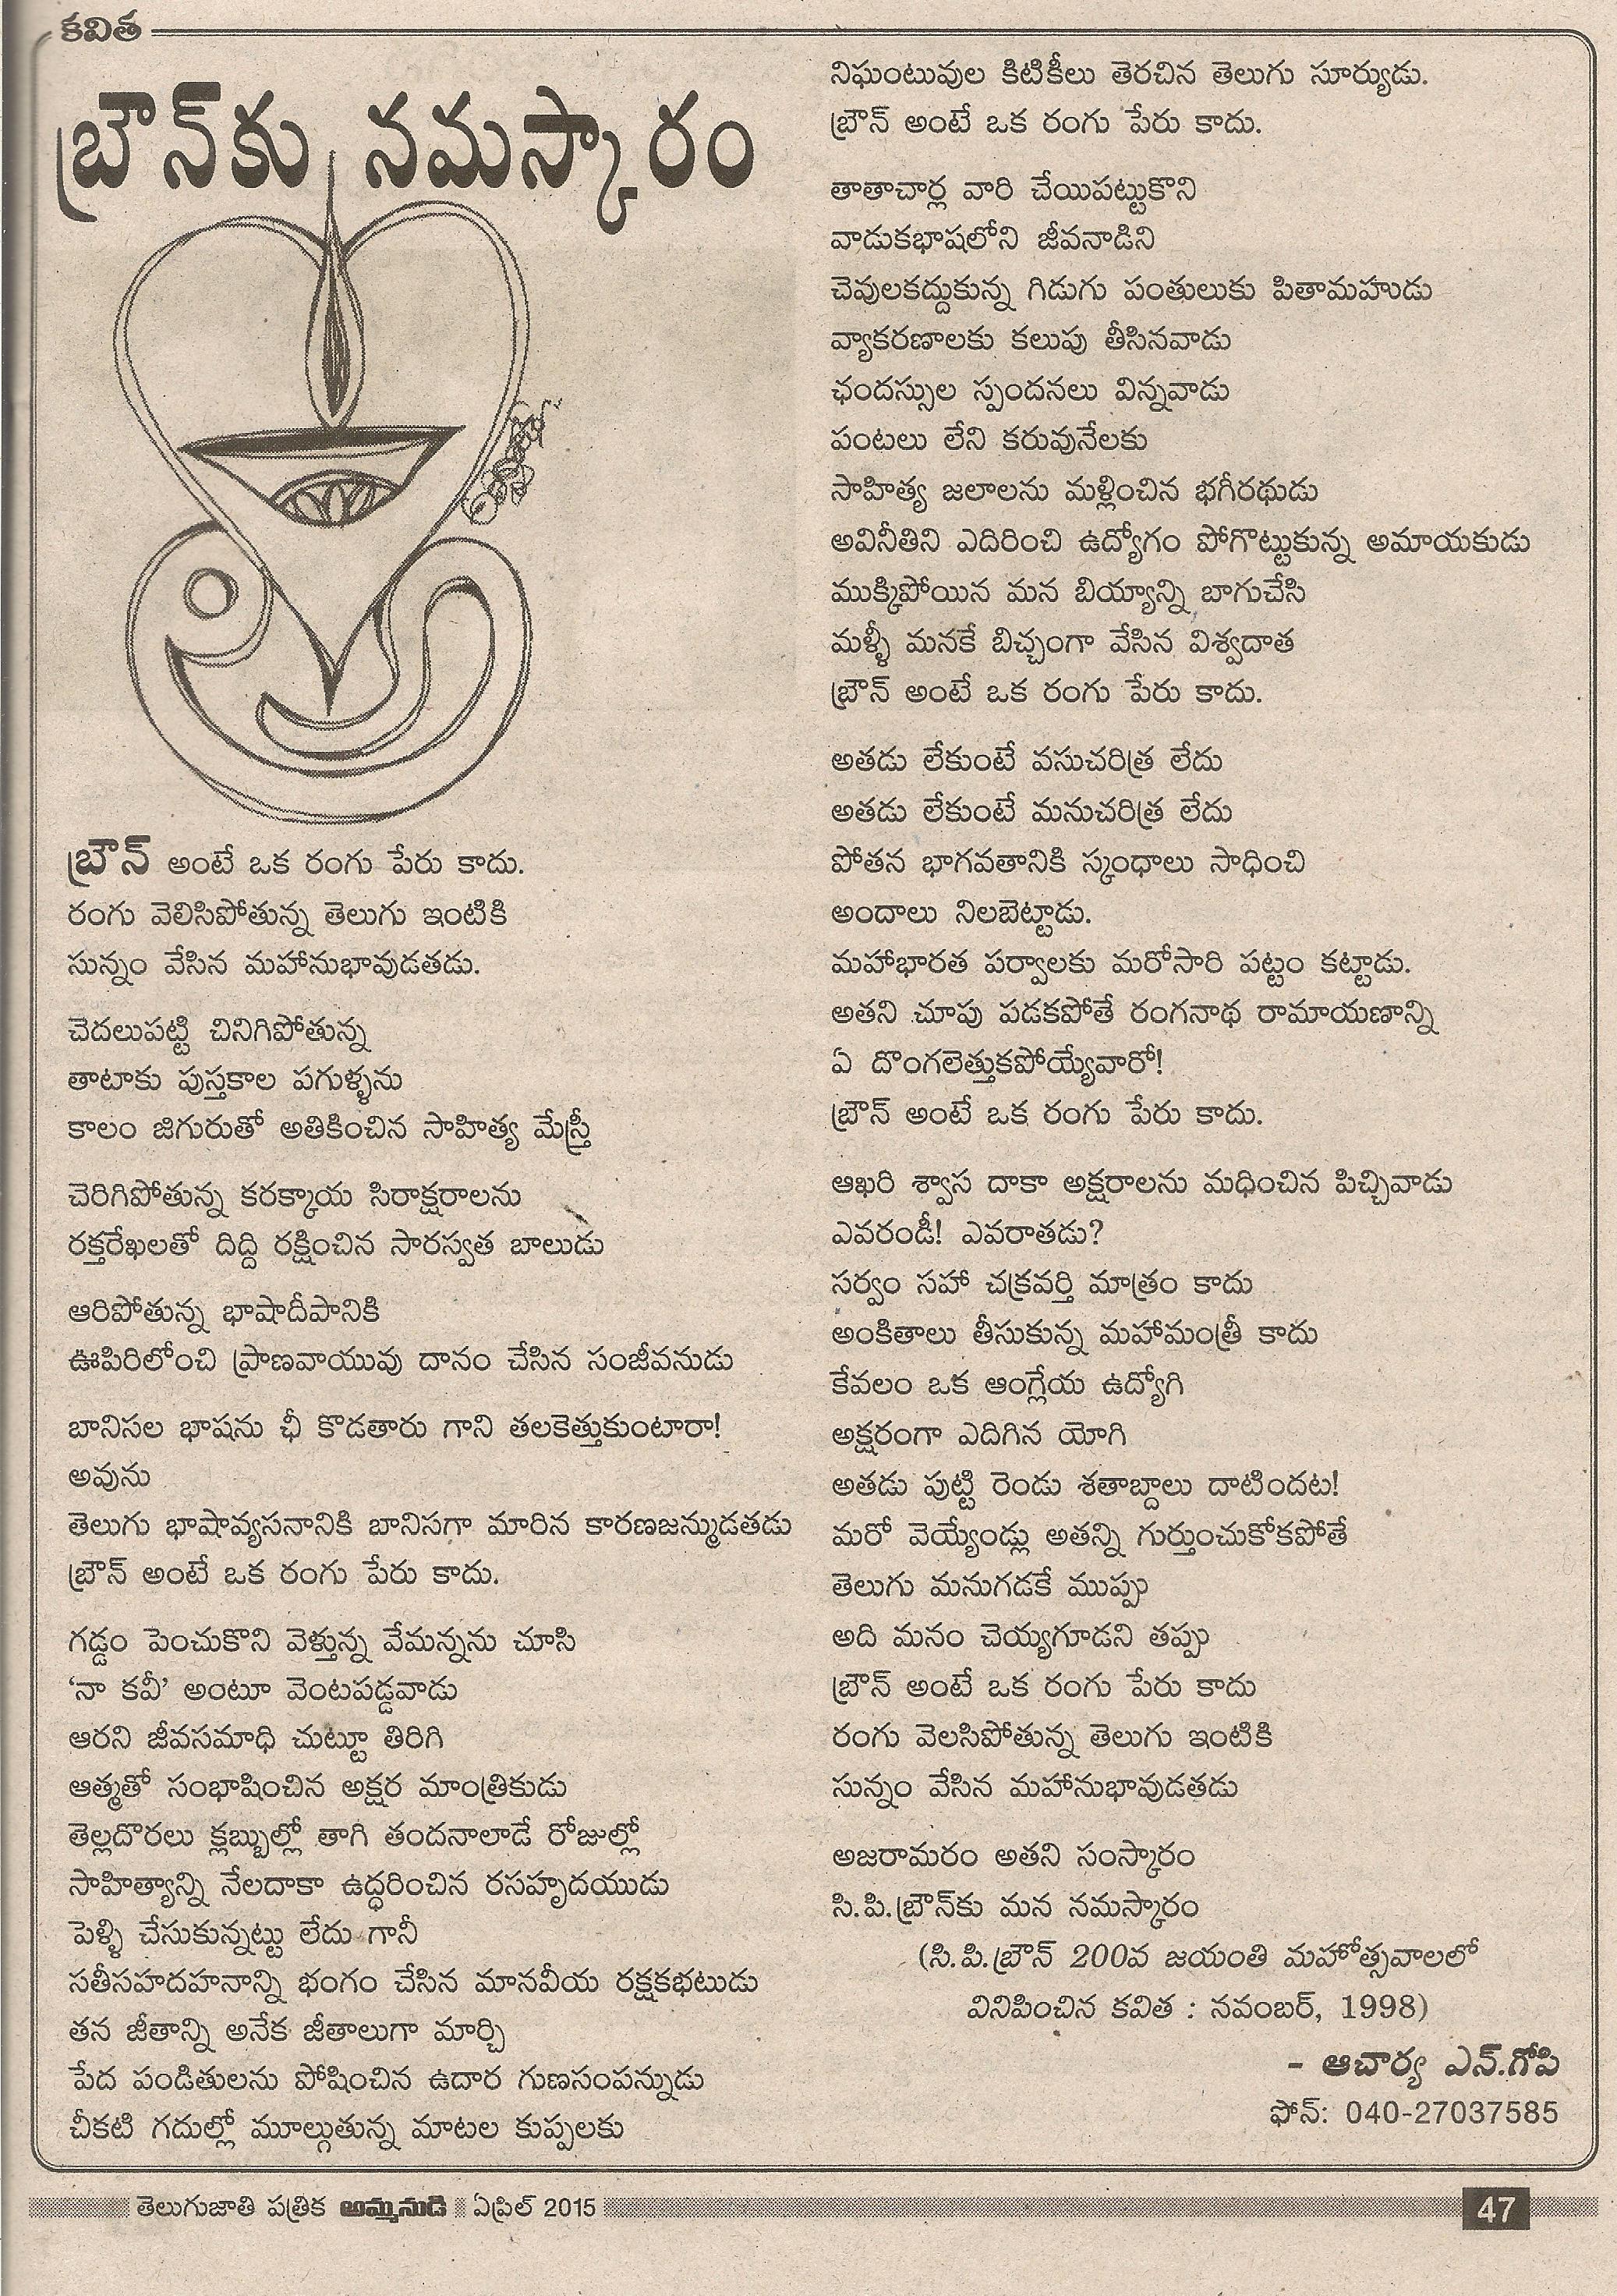 కవిత
బ్రౌన్‌కు నమస్కారం
బ్రౌన్ అంటే ఒక రంగు పేరు కాదు.
రంగు వెలిసిపోతున్న తెలుగు ఇంటికి
సున్నం వేసిన మహానుభావుడతడు.
చెదలుపట్టి చినిగిపోతున్న
తాటాకు పుస్తకాల పగుళ్ళను
కాలం జిగురుతో అతికించిన సాహిత్య మేస్త్రీ
చెరిగిపోతున్న కరక్కాయ సిరాక్షరాలను
రక్తరేఖలతో దిద్ది రక్షించిన సారస్వత బాలుడు
ఆరిపోతున్న భాషాదీపానికి
ఊపిరిలోంచి ప్రాణవాయువు దానం చేసిన సంజీవనుడు
బానిసల భాషను ఛీ కొడతారు గాని తలకెత్తుకుంటారా!
అవును
తెలుగు భాషావ్యసనానికి బానిసగా మారిన కారణజన్ముడతడు
బ్రౌన్ అంటే ఒక రంగు పేరు కాదు.
గడ్డం పెంచుకొని వెళ్తున్న వేమన్నను చూసి
‘నా కవీ’ అంటూ వెంటపడ్డవాడు
ఆరని జీవసమాధి చుట్టూ తిరిగి
ఆత్మతో సంభాషించిన అక్షర మాంత్రికుడు
తెల్లదొరలు క్లబ్బుల్లో తాగి తందనాలాడే రోజుల్లో
సాహిత్యాన్ని నేలదాకా ఉద్ధరించిన రసహృదయుడు
పెళ్ళి చేసుకున్నట్టు లేదు గానీ
సతీసహదహనాన్ని భంగం చేసిన మానవీయ రక్షకభటుడు
తన జీతాన్ని అనేక జీతాలుగా మార్చి
పేద పండితులను పోషించిన ఉదార గుణసంపన్నుడు
చీకటి గదుల్లో మూల్గుతున్న మాటల కుప్పలకు
నిఘంటువుల కిటికీలు తెరచిన తెలుగు సూర్యుడు.
బ్రౌన్ అంటే ఒక రంగు పేరు కాదు.
తాతాచార్ల వారి చేయిపట్టుకొని
వాడుకభాషలోని జీవనాడిని
చెవులకద్దుకున్న గిడుగు పంతులుకు పితామహుడు
వ్యాకరణాలకు కలుపు తీసినవాడు
ఛందస్సుల స్పందనలు విన్నవాడు
పంటలు లేని కరువునేలకు
సాహిత్య జలాలను మళ్లించిన భగీరథుడు
అవినీతిని ఎదిరించి ఉద్యోగం పోగొట్టుకున్న అమాయకుడు
ముక్కిపోయిన మన బియ్యాన్ని బాగుచేసి
మళ్ళీ మనకే బిచ్చంగా వేసిన విశ్వదాత
బ్రౌన్ అంటే ఒక రంగు పేరు కాదు.
అతడు లేకుంటే వసుచరిత్ర లేదు
అతడు లేకుంటే మనుచరిత్ర లేదు
పోతన భాగవతానికి స్కంధాలు సాధించి
అందాలు నిలబెట్టాడు.
మహాభారత పర్వాలకు మరోసారి పట్టం కట్టాడు.
అతని చూపు పడకపోతే రంగనాథ రామాయణాన్ని
ఏ దొంగలెత్తుకపోయ్యేవారో!
బ్రౌన్ అంటే ఒక రంగు పేరు కాదు.
ఆఖరి శ్వాస దాకా అక్షరాలను మధించిన పిచ్చివాడు
ఎవరండీ! ఎవరాతడు?
సర్వం సహా చక్రవర్తి మాత్రం కాదు
అంకితాలు తీసుకున్న మహామంత్రీ కాదు
కేవలం ఒక ఆంగ్లేయ ఉద్యోగి
అక్షరంగా ఎదిగిన యోగి
అతడు పుట్టి రెండు శతాబ్దాలు దాటిందట!
మరో వెయ్యేండ్లు అతన్ని గుర్తుంచుకోకపోతే
తెలుగు మనుగడకే ముప్పు
అది మనం చెయ్యగూడని తప్పు
బ్రౌన్ అంటే ఒక రంగు పేరు కాదు
రంగు వెలసిపోతున్న తెలుగు ఇంటికి
సున్నం వేసిన మహానుభావుడతడు
అజరామరం అతని సంస్కారం
సి.పి.బ్రౌన్‌కు మన నమస్కారం
(సి.పి.బ్రౌన్ 200వ జయంతి మహోత్సవాలలో
వినిపించిన కవిత : నవంబర్, 1998)
- ఆచార్య ఎన్.గోపి
ఫోన్: 040-27037585
తెలుగుజాతి పత్రిక అమ్మనుడి ఏప్రిల్ 2015
47